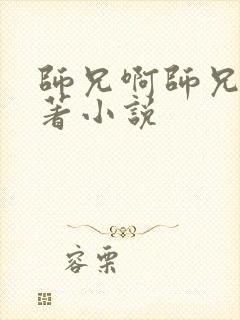 師兄啊師兄
著小説
容栗